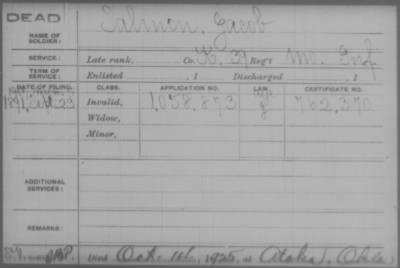 DEAD
NAME OF SOLDIER: Salmon, Jacob
SERVICE: Late rank, Co. K, 39 Reg't Mo. Inf
TERM OF SERVICE: Enlisted , 1 Discharged , 1
DATE OF FILING. CLASS. APPLICATION NO. LAW. CERTIFICATE NO.
1891, Sept. 23 Invalid, 1,058,873 762,370
Widow,
Minor,
ADDITIONAL SERVICES:
REMARKS:
Died Oct. 16, 1925, at Atoka, Okla.